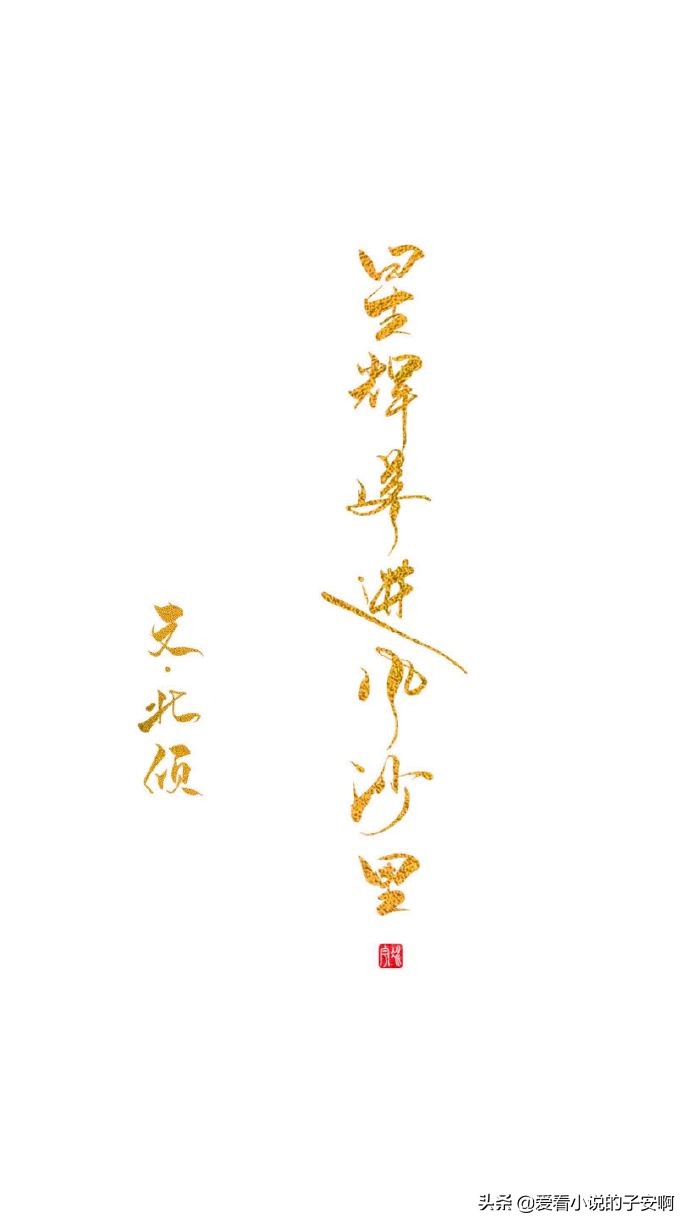 星辉落进风沙里
文·北倾
头条 @爱看小说的子安啊